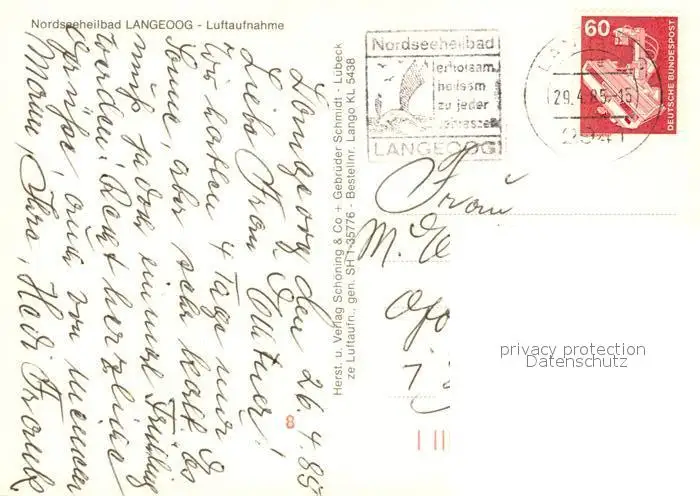 Nordseeheilbad LANGEOOG - Luftaufnahme
Langeoog den 26.4.85
Liebe Frau
Wir hatten 4 Tage nur
Sonne, aber sehr kalt. Es
muß ja doch einmal Frühling
werden! Recht herzliche
Grüße, auch von meinem
Mann, Ihre, Heidi Frank
8
Herst. u. Verlag Schöning & Co + Gebrüder Schmidt - Lübeck
ze Luftaufn., gen. SH 1-35776 - Bestellnr. Lango KL 5438
Nordseeheilbad
erholsam
heilsam
zu jeder
Jahreszeit
LANGEOOG
29.4.85-15
2941
60
DEUTSCHE BUNDESPOST
Frau
M.
7
privacy protection
Datenschutz